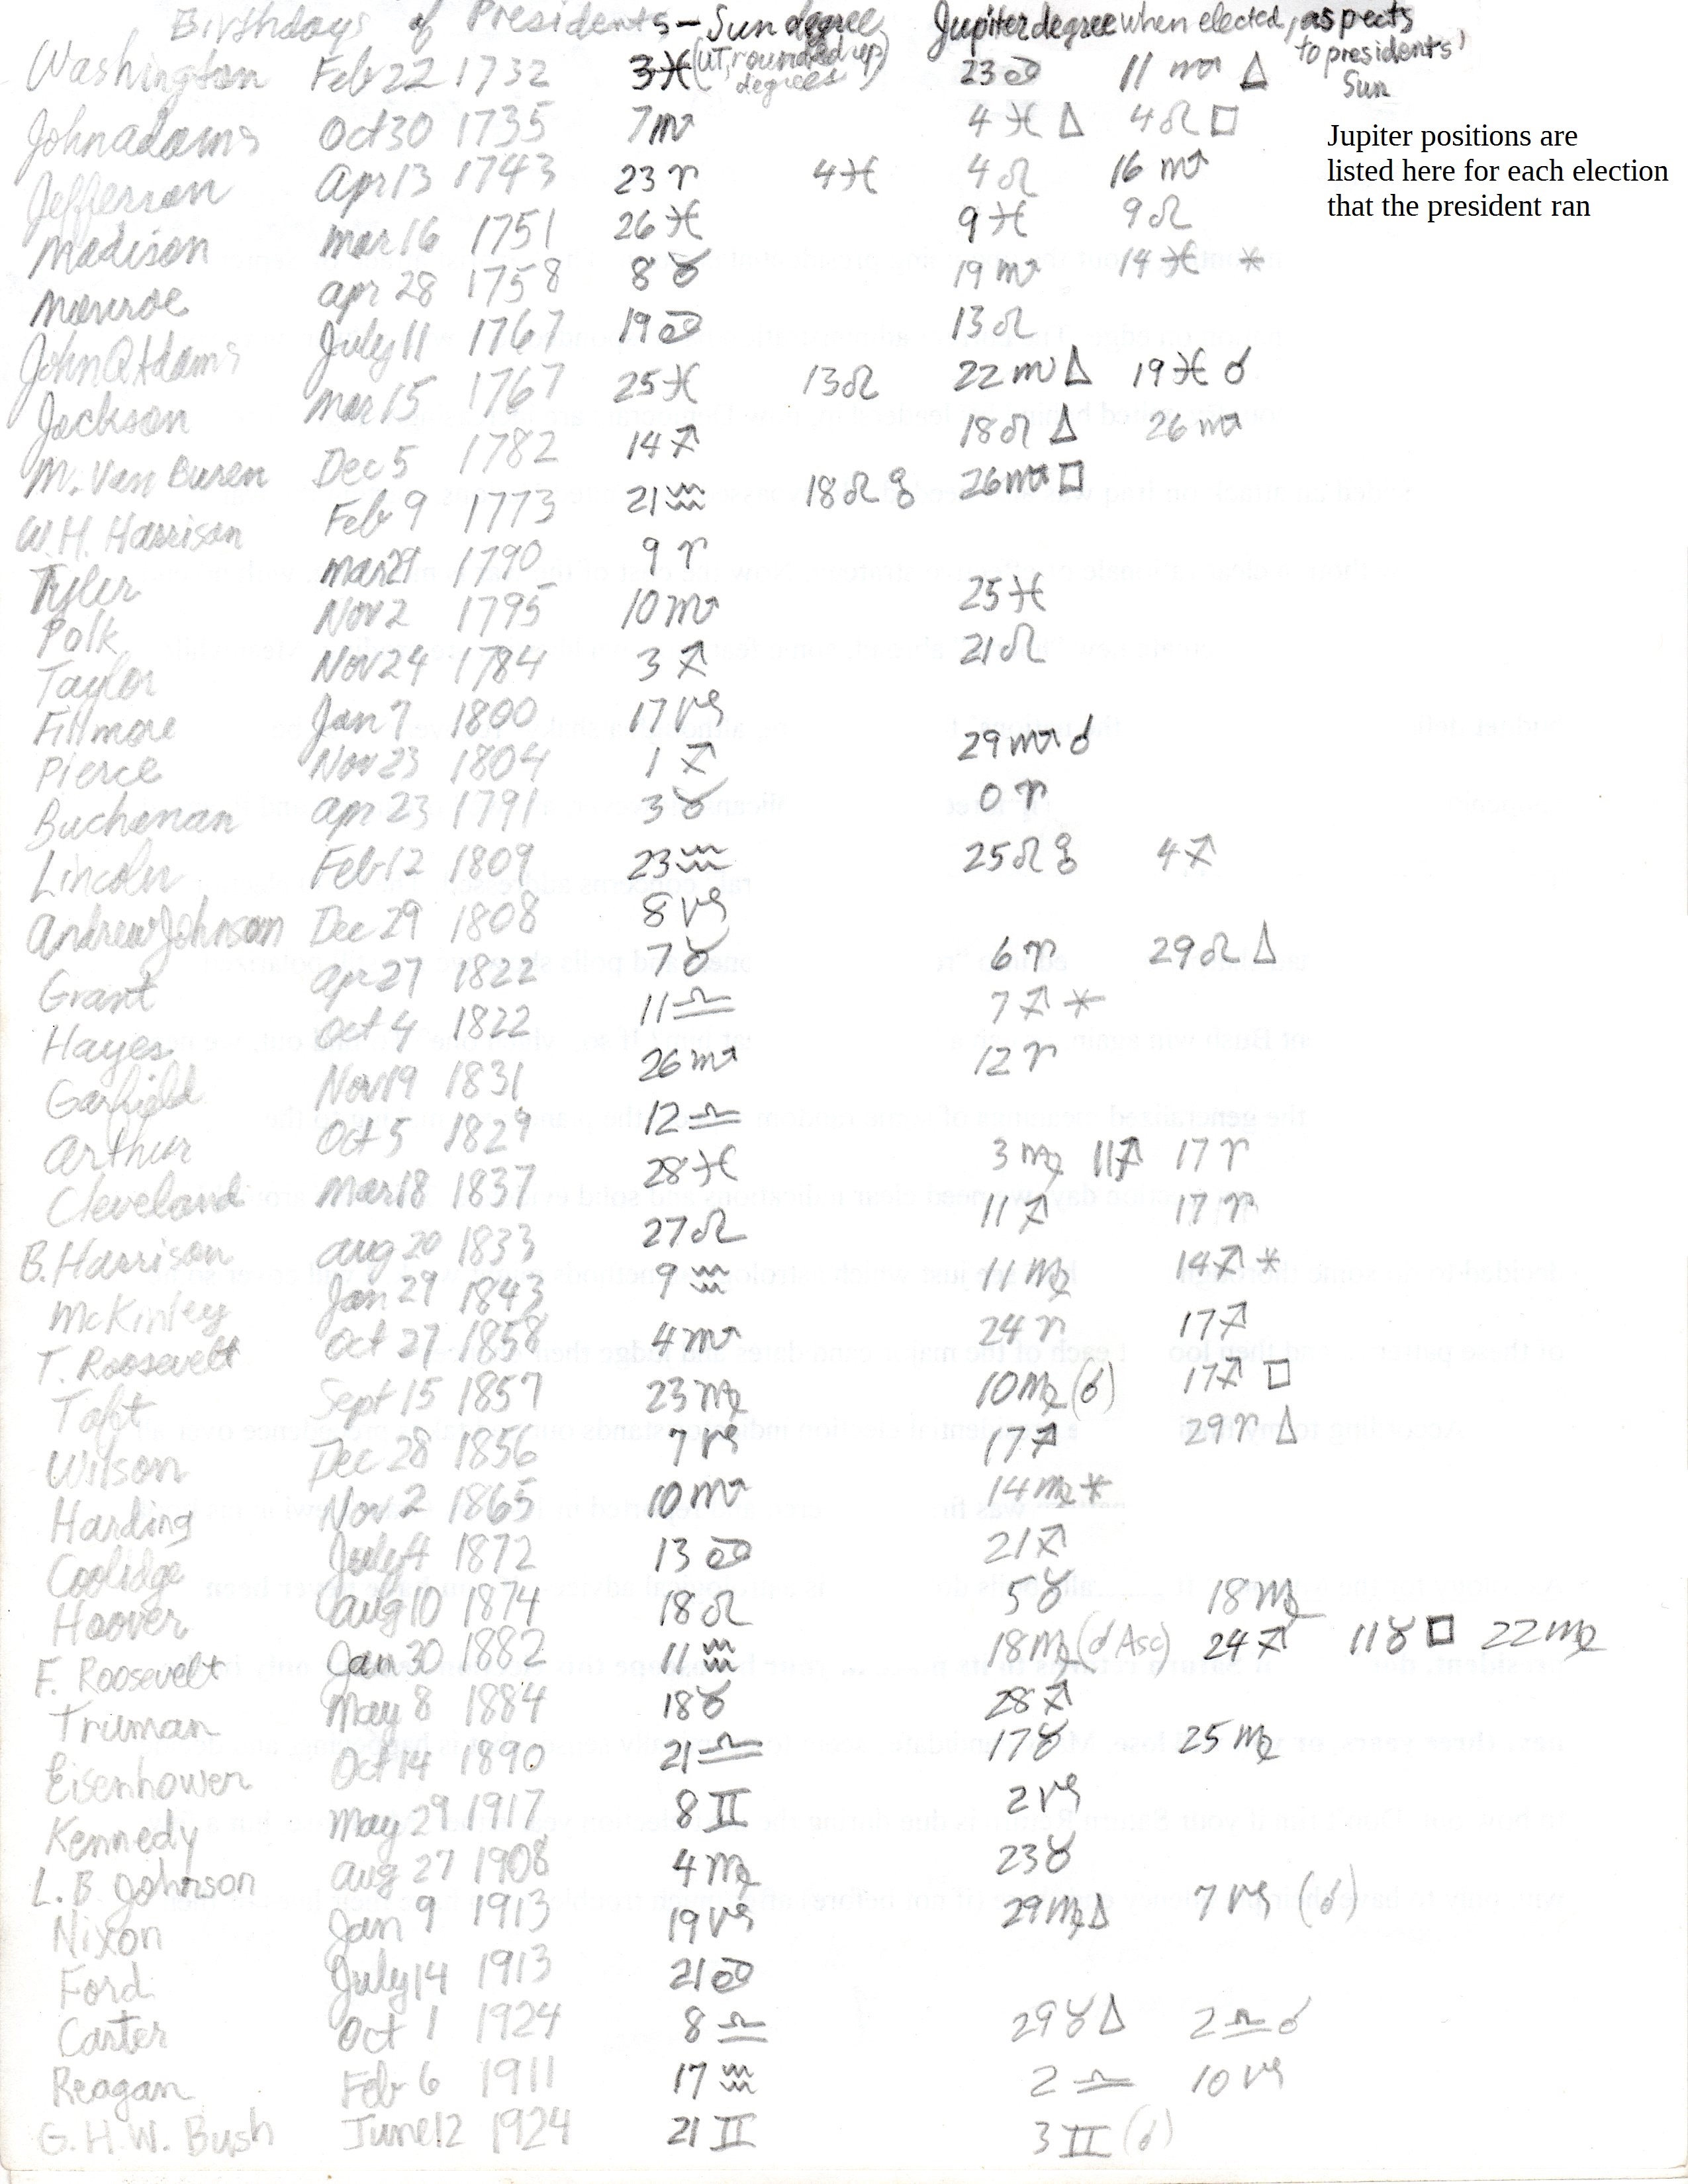 Birthdays of Presidents – Sun degree Jupiter degree when elected, aspects
(UT, rounded up) to presidents'
degrees Sun
Washington Feb 22 1732 3♓ 23♋ 11♏ △
John Adams Oct 30 1735 7♏ 4♓ △ 4♌ □
Jupiter positions are
listed here for each election
that the president ran
Jefferson Apr 13 1743 23♈ 4♓ 4♌ 16♏
Madison Mar 16 1751 26♓ 9♓ 9♌
Monroe Apr 28 1758 8♉ 19♏ 14♓ ⚹
John Q Adams July 11 1767 19♋ 13♌
Jackson Mar 15 1767 25♓ 13♌ 22♏ △ 19♓ ☌
M. Van Buren Dec 5 1782 14♐ 18♌ △ 26♏
W.H. Harrison Feb 9 1773 21♒ 18♌ ☍ 26♏ □
Tyler Mar 29 1790 9♈
Polk Nov 2 1795 10♏ 25♓
Taylor Nov 24 1784 3♐ 21♌
Fillmore Jan 7 1800 17♑
Pierce Nov 23 1804 1♐ 29♏ ☌
Buchanan Apr 23 1791 3♉ 0♈
Lincoln Feb 12 1809 23♒ 25♌ ☍ 4♐
Andrew Johnson Dec 29 1808 8♑
Grant Apr 27 1822 7♉ 6♈ 29♌ △
Hayes Oct 4 1822 11♎ 7♐ ⚹
Garfield Nov 19 1831 26♏ 12♈
Arthur Oct 5 1829 12♎
Cleveland Mar 18 1837 28♓ 3♍ 11♐ 17♈
B. Harrison Aug 20 1833 27♌ 11♐ 17♈
McKinley Jan 29 1843 9♒ 11♍ 14♐ ⚹
T. Roosevelt Oct 27 1858 4♏ 24♈ 17♐
Taft Sept 15 1857 23♍ 10♍ (☌) 17♐ □
Wilson Dec 28 1856 7♑ 17♐ 29♈ △
Harding Nov 2 1865 10♏ 14♍ ⚹
Coolidge July 4 1872 13♋ 21♐
Hoover Aug 10 1874 18♌ 5♉ 18♍
F. Roosevelt Jan 30 1882 11♒ 18♍ (☌ Asc) 24♐ 11♉ □ 22♍
Truman May 8 1884 18♉ 28♐
Eisenhower Oct 14 1890 21♎ 17♉ 25♍
Kennedy May 29 1917 8♊ 2♑
L.B. Johnson Aug 27 1908 4♍ 23♉
Nixon Jan 9 1913 19♑ 29♍ △ 7♑ (☌)
Ford July 14 1913 21♋
Carter Oct 1 1924 8♎ 29♉ △ 2♎ ☌
Reagan Feb 6 1911 17♒ 2♎ 10♑
G.H.W. Bush June 12 1924 21♊ 3♊ (☌)